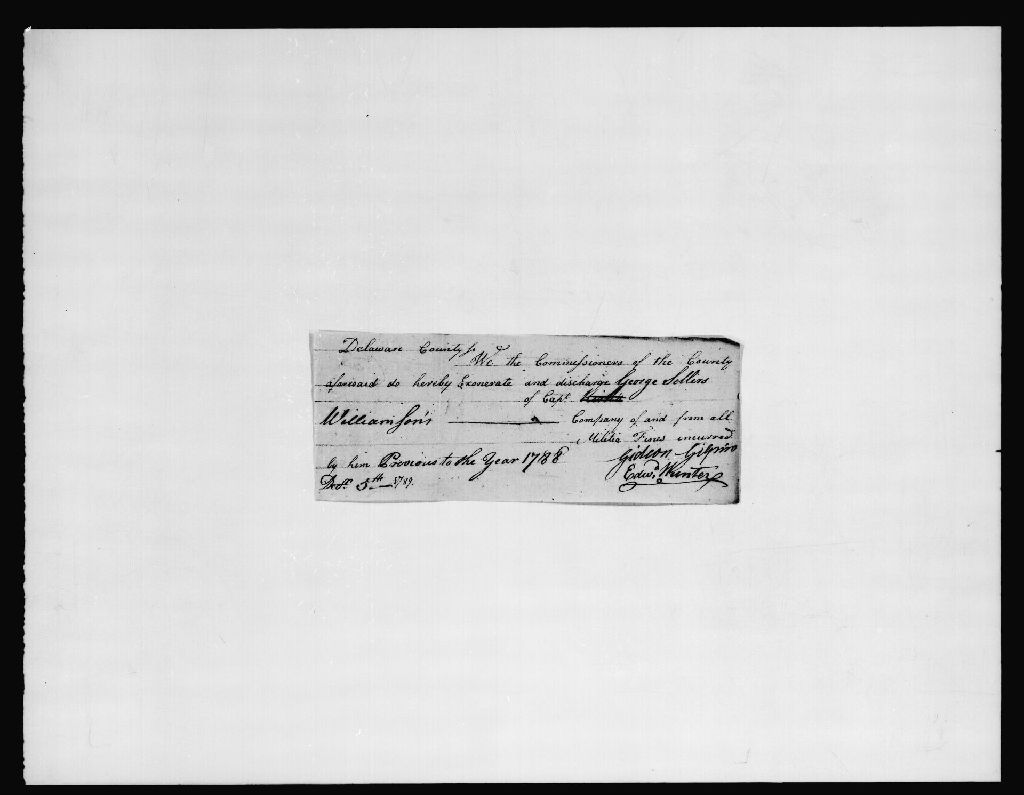 Delaware County ss
We the Commissioners of the County
aforesaid do hereby Exonerate and discharge George Sellers
of Capt.
Williamson's Company of and from all
Militia Fines incurred
by him Previous to the Year 1788
Gideon Gilpin
Decr. 5th 1789.
Edwd. Hunter